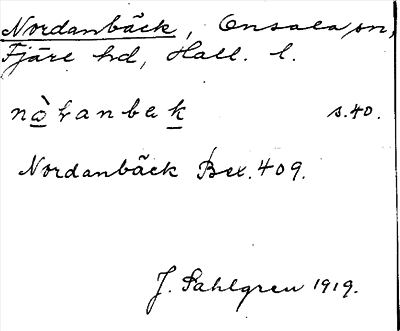 Nordanbäck, Onsala sn,
Fjäre hd, Hall. l.
nò̱ɽanbak̠ s.40.
Nordanbäck Bex. 409.
J. Sahlgren 1919.